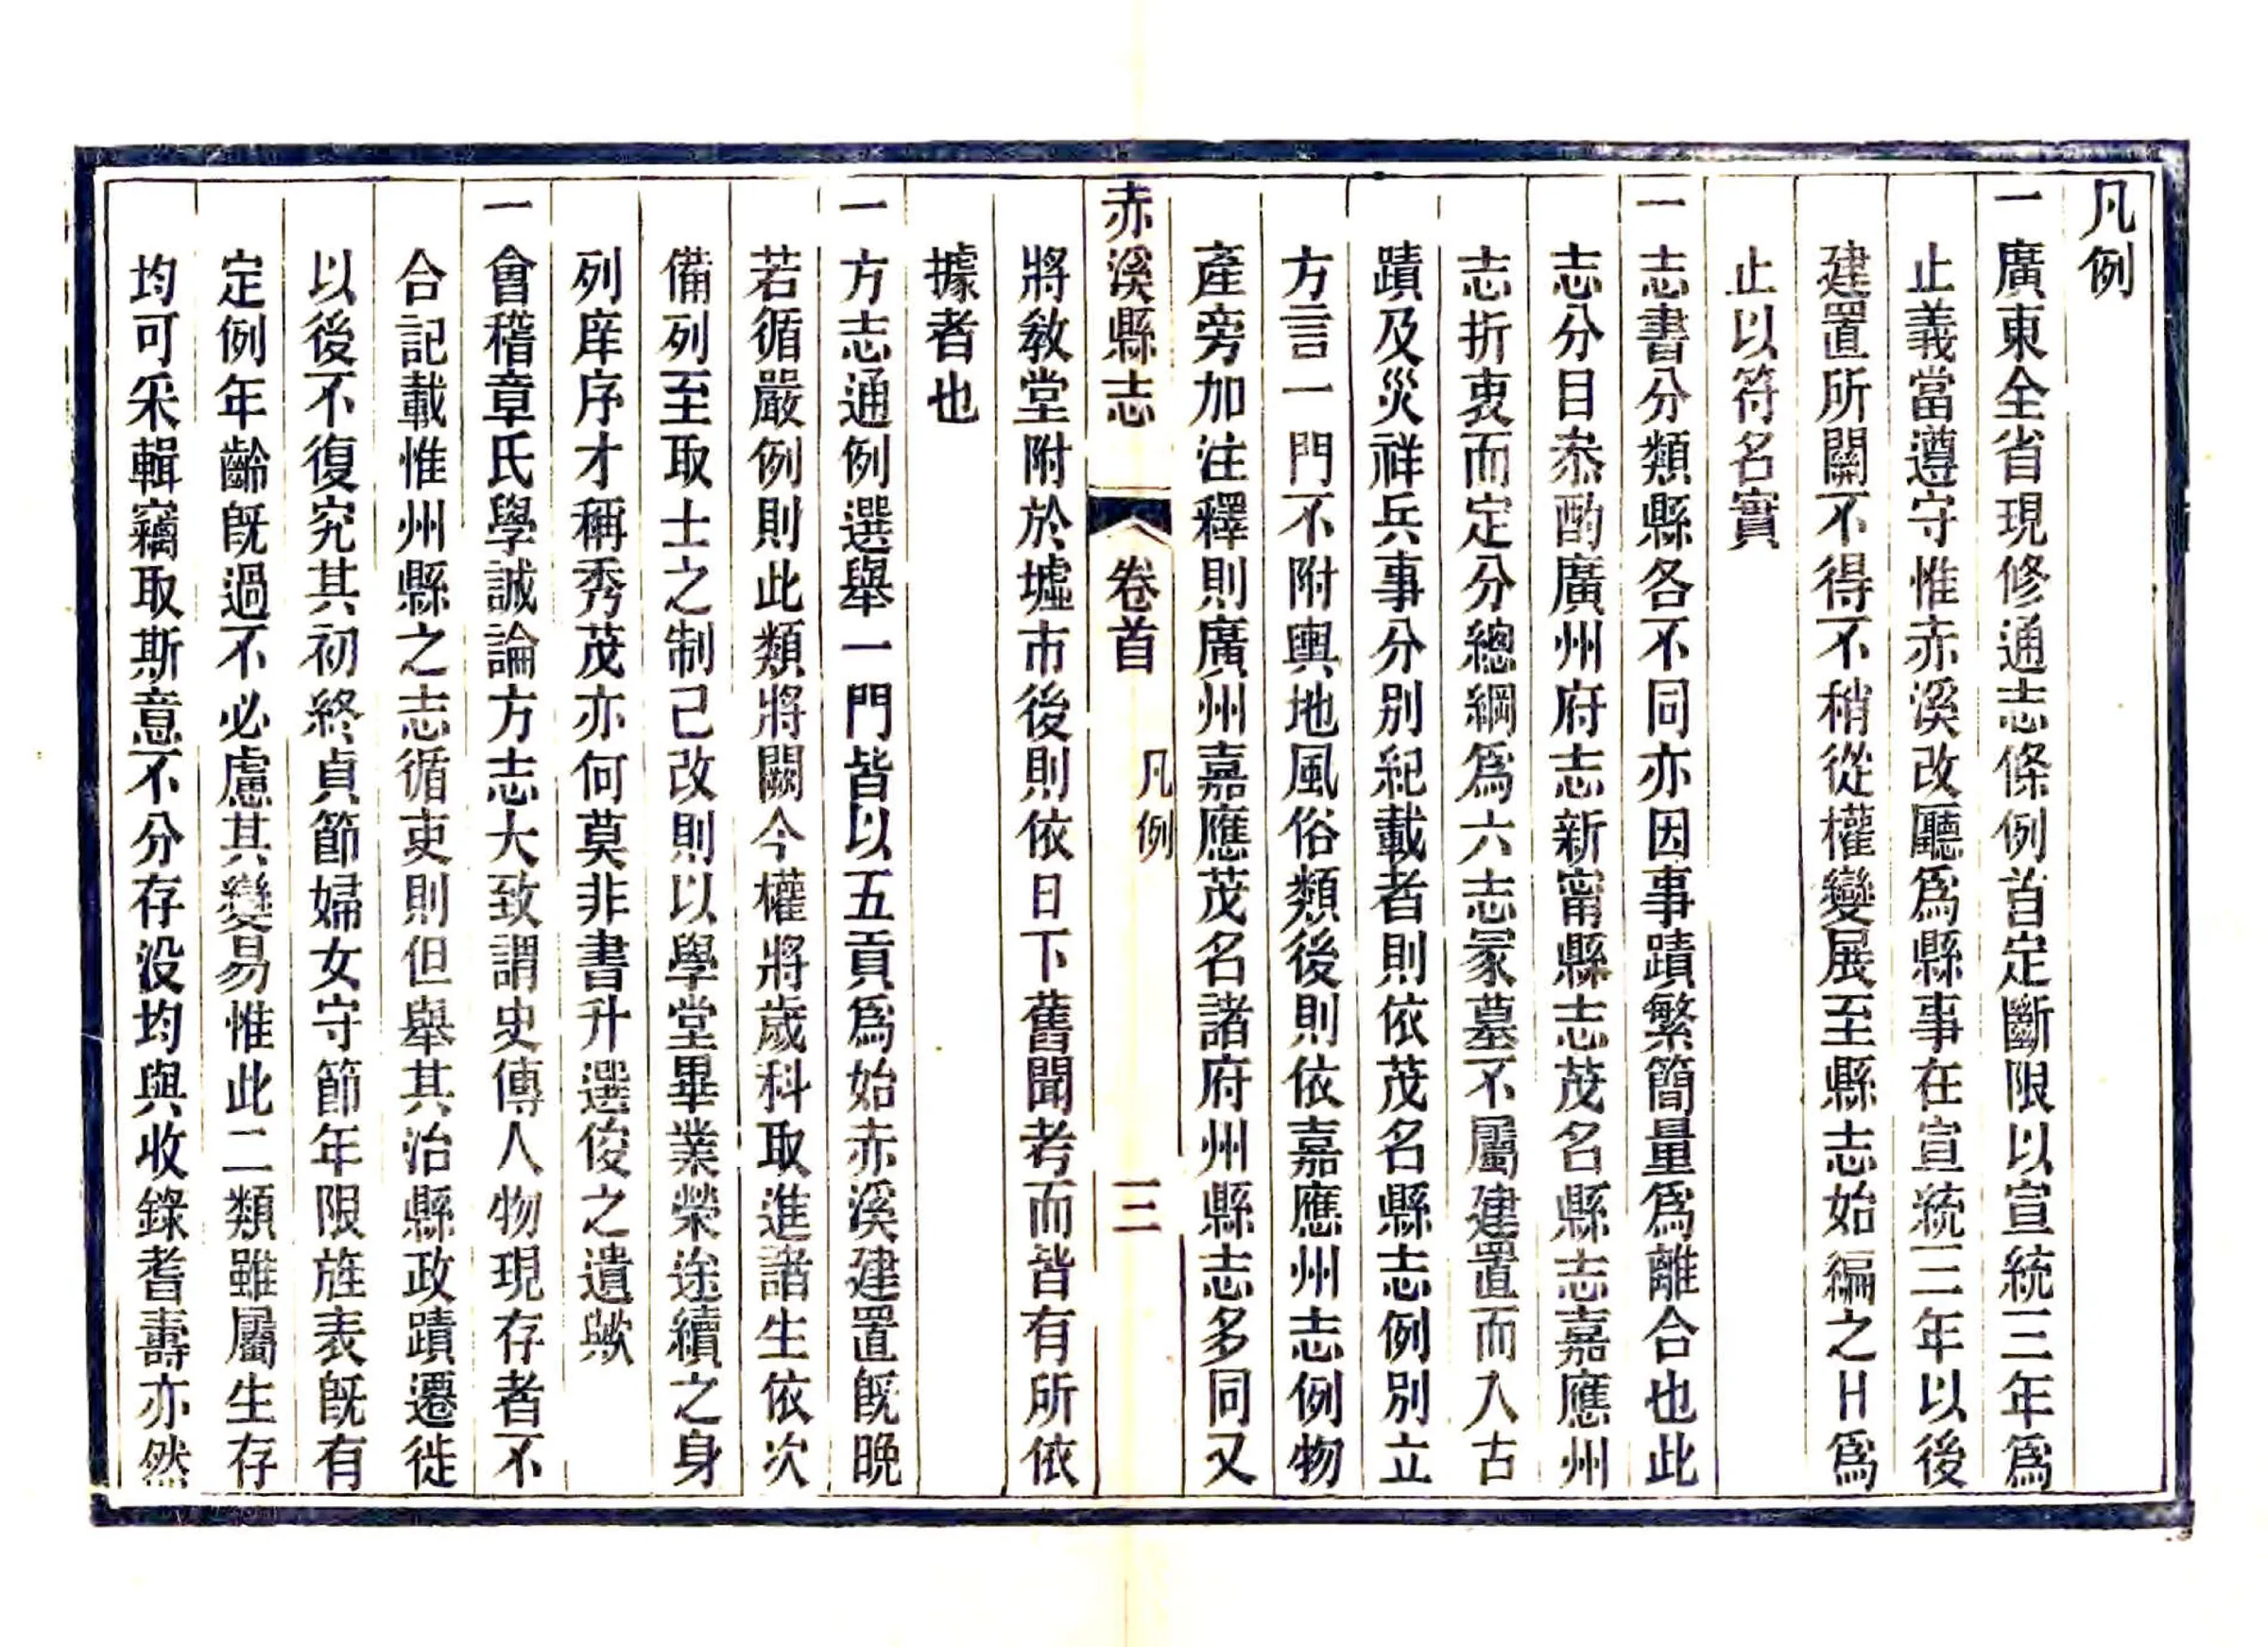 凡例
一廣東全省現修通志條例首定斷限以宣統三年爲
止義當遵守惟赤溪改廳爲縣事在宣統三年以後
建置所關不得不稍從權變展至縣志始編之日爲
止以符名實
一志書分類縣各不同亦因事蹟繁簡量爲離合也此
志分目叅酌廣州府志新甯縣志茂名縣志嘉應州
志折衷而定分總綱爲六志冢墓不屬建置而入古
蹟及災祥兵事分別紀載者則依茂名縣志例別立
方言一門不附輿地風俗類後則依嘉應州志例物
產旁加注釋則廣州嘉應茂名諸府州縣志多同又
赤溪縣志 卷首 凡例 三
將敎堂附於墟市後則依日下舊聞考而皆有所依
據者也
一方志通例選舉一門皆以五貢爲始赤溪建置旣晚
若循嚴例則此類將闕今權將歲科取進諸生依次
備列至取士之制已改則以學堂畢業榮途續之身
列庠序才稱秀茂亦何莫非書升選俊之遺歟
一會稽章氏學誠論方志大致謂史傳人物現存者不
合記載惟州縣之志循吏則但舉其治縣政蹟遷徙
以後不復究其初終貞節婦女守節年限旌表旣有
定例年齡旣過不必慮其變易惟此二類雖屬生存
均可采輯竊取斯意不分存没均與收錄耆壽亦然